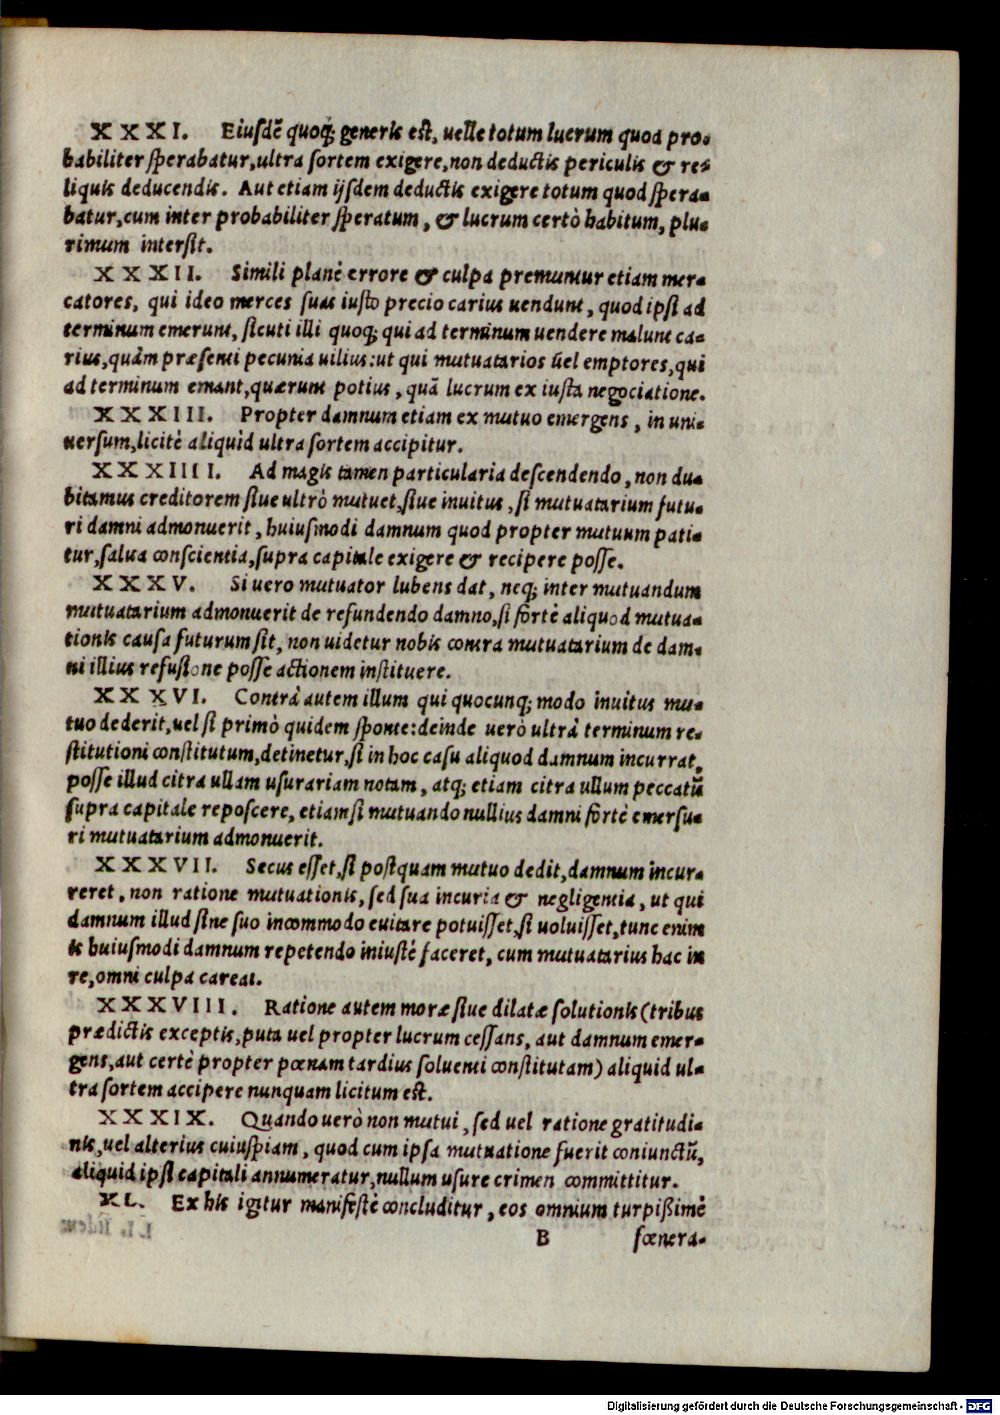 XXXI. Eiusdẽ quoq; generis est, uelle totum lucrum quod pro-
babiliter sperabatur, ultra sortem exigere, non deductis periculis & re-
liquis deducendis. Aut etiam ijsdem deductis exigere totum quod spera-
batur, cum inter probabiliter speratum, & lucrum certò habitum, plu-
rimum intersit.
XXXII. Simili planè errore & culpa premuntur etiam mer-
catores, qui ideo merces suas iusto precio carius uendunt, quod ipsi ad
terminum emerunt, sicuti illi quoq; qui ad terminum uendere malunt ca-
rius, quàm præsenti pecunia uilius: ut qui mutuatarios uel emptores, qui
ad terminum emant, quærunt potius, quã lucrum ex iusta negociatione.
XXXIII. Propter damnum etiam ex mutuo emergens, in uni-
uersum, licitè aliquid ultra sortem accipitur.
XXXIIII. Ad magis tamen particularia descendendo, non du-
bitamus creditorem siue ultrò mutuet, siue inuitus, si mutuatarium futu-
ri damni admonuerit, huiusmodi damnum quod propter mutuum pati-
tur, salua conscientia, supra capitale exigere & recipere posse.
XXXV. Si uero mutuator lubens dat, neq; inter mutuandum
mutuatarium admonuerit de refundendo damno, si fortè aliquod mutua-
tionis causa futurum sit, non uidetur nobis contra mutuatarium de dam-
ni illius refusione posse actionem instituere.
XXXVI. Contrà autem illum qui quocunq; modo inuitus mu-
tuo dederit, uel si primò quidem sponte: deinde uerò ultrà terminum re-
stitutioni constitutum, detinetur, si in hoc casu aliquod damnum incurrat,
posse illud citra ullam usurariam notam, atq; etiam citra ullum peccatũ
supra capitale reposcere, etiamsi mutuando nullius damni fortè emersu-
ri mutuatarium admonuerit.
XXXVII. Secus esset, si postquam mutuo dedit, damnum incur-
reret, non ratione mutuationis, sed sua incuria & negligentia, ut qui
damnum illud sine suo incommodo euitare potuisset, si uoluisset, tunc enim
is huiusmodi damnum repetendo iniustè faceret, cum mutuatarius hac in
re, omni culpa careat.
XXXVIII. Ratione autem moræ siue dilatæ solutionis (tribus
prædictis exceptis, puta uel propter lucrum cessans, aut damnum emer-
gens, aut certè propter pœnam tardius soluenti constitutam) aliquid ul-
tra sortem accipere nunquam licitum est.
XXXIX. Quando uerò non mutui, sed uel ratione gratitudi-
nis, uel alterius cuiuspiam, quod cum ipsa mutuatione fuerit coniunctũ,
aliquid ipsi capitali annumeratur, nullum usure crimen committitur.
XL. Ex his igitur manifestè concluditur, eos omnium turpißimè
B fœnera-
Digitalisierung gefördert durch die Deutsche Forschungsgemeinschaft - DFG